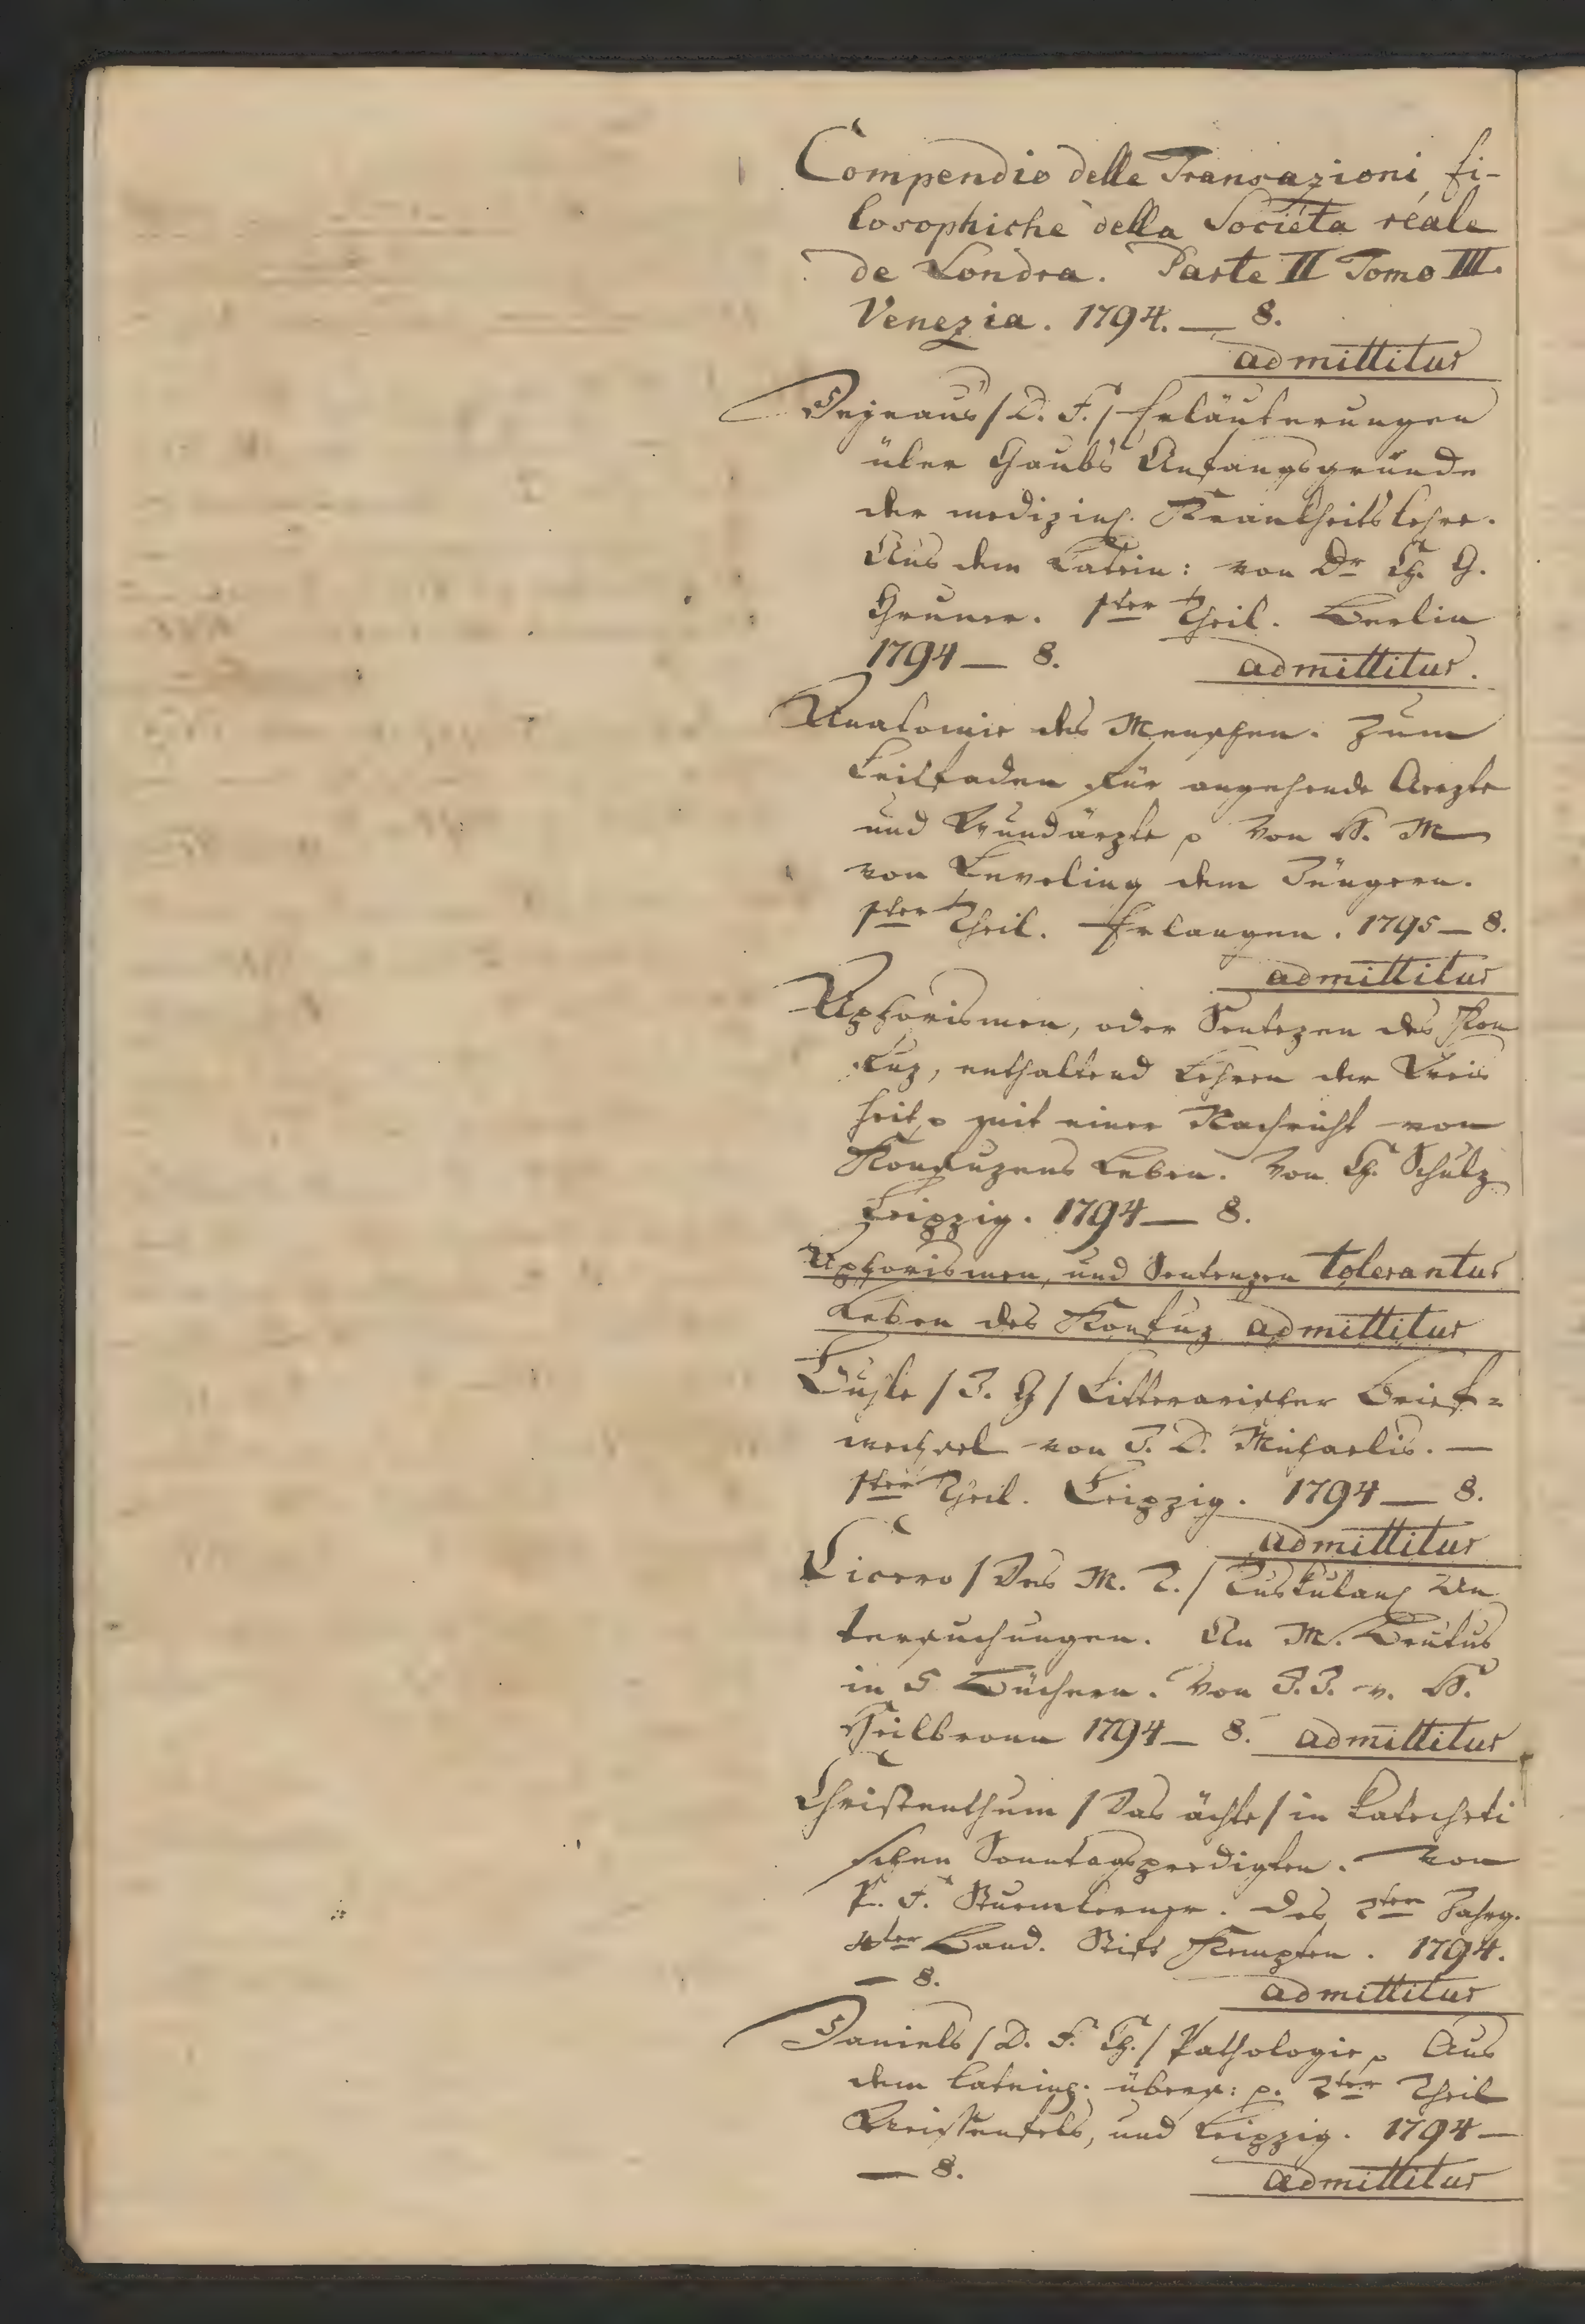 Compendio delle Transazioni fi-
losophiche della Societa reale
de Londra. Parte II Tomo III.
Venezia. 1794. — 8.
admittitur
Dejeans / D. F. / Erläuterungen
über Gaubs Anfangsgründe
der medizinsch. Krankheitslehre.
Aus dem Latein: von Dr Ch. G.
Gruner. 1ter Theil. Berlin
1794 — 8. admittitur.
Anatomie des Menschen. Zum
Leitfaden für angehende Aerzte
und Wundärzte p Von H. M
von Leveling dem Jüngern.
1ter Theil. Erlangen. 1795 — 8.
admittitur
Aphorismen, oder Sentezen des Kon
fuz, enthaltend Lehren der Weis
heit p mit einer Nachricht von
Konfuzens Leben. Von Ch. Schulz
Leipzig. 1794 — 8.
Aphorismen, und Sentenzen tolerantur
Leben des Konfuz admittitur
Buhle / J. G / Litterarischer Brief=
wechsel von J. D. Michaelis. —
1ter Theil. Leipzig. 1794 — 8.
admittitur
Cicero / Des M. T. / Tuskulansch Un
tersuchungen. An M. Brutus
in 5 Büchern. Von J. J. v. H.
Heilbronn 1794 — 8. admittitur
Christenthum / Das ächte / in katecheti
schen Sonntagspredigten. Von
P. F. Sturmlerner. Des 2ten Jahrg.
4ter Band. Stift Kempten. 1794.
— 8. admittitur
Daniels / D. F. Ch. / Pathologie p Aus
dem lateinsch. übers: p. 2ter Theil
Weissenfels, und Leipzig. 1794 —
— 8. admittitur